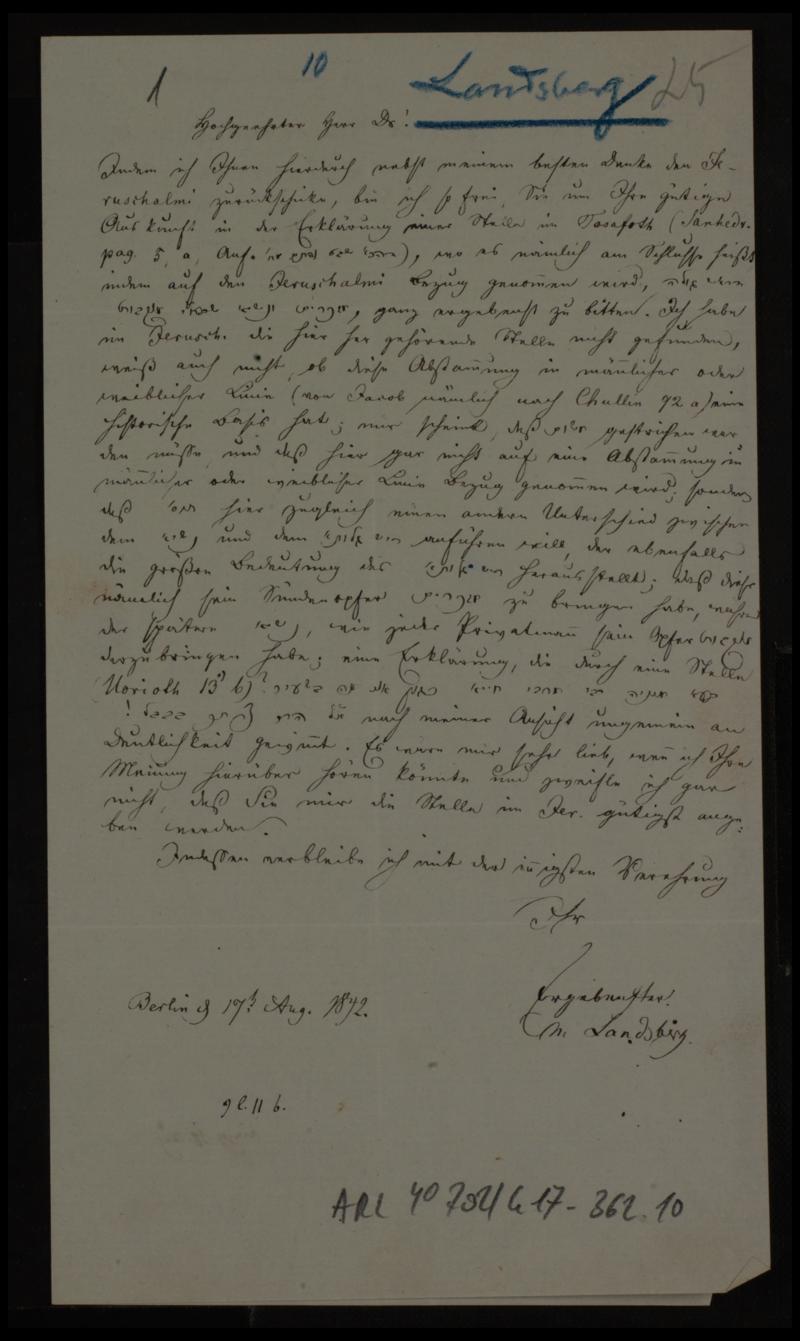 1 10 Landsberg 25
Hochgeehrter Herr Dr!
Indem ich Ihnen hierdurch nebst meinem besten Danke den Je-
ruschalmi zurückschicke, bin ich so frei, Sie um Ihre gütige
Auskunft in der Erklärung einer Stelle im Tosafoth (Sanhedr.
pag. 5, a, Anf. ), wo es nämlich am Schlusse heißt
indem auf den Jeruschalmi Bezug genommen wird,
, ganz ergebenst zu bitten. Ich habe
im Jerusch. die hier her gehörende Stelle nicht gefunden,
weiß auch nicht, ob diese Abstammung in männlicher oder
weiblicher Linie (von Jacob nämlich nach Chullin 92 a) eine
historische Basis hat; mir scheint, daß gestrichen wer
den müsse, und daß hier gar nicht auf eine Abstammung in
männlicher oder weiblicher Linie Bezug genommen wird; sondern
daß hier zugleich einen andern Unterschied zwischen
dem נשיא und dem ריש גלותא anführen will, der ebenfalls
die größre Bedeutung des ריש גלותא herausstellt; daß dieser
nämlich sein Sündenopfer zu bringen habe, während
der spätere נשיא, wie jeder Privatmann sein Opfer
darzubringen habe; eine Erklärung, die durch eine Stelle
Horioth
! nach meiner Ansicht ungemein an
Deutlichkeit gewinnt. Es wäre mir sehr lieb, wenn ich Ihre
Meinung hierüber hören könnte und zweifle ich gar
nicht, daß Sie mir die Stelle im Jer. gütigst ange-
ben werden.
Indessen verbleibe ich mit der innigsten Verehrung
Ihr
Ergebenster.
Berlin d 17t Aug. 1842.
M. Landsberg.
ARC 40 792/G 17 - 362.10